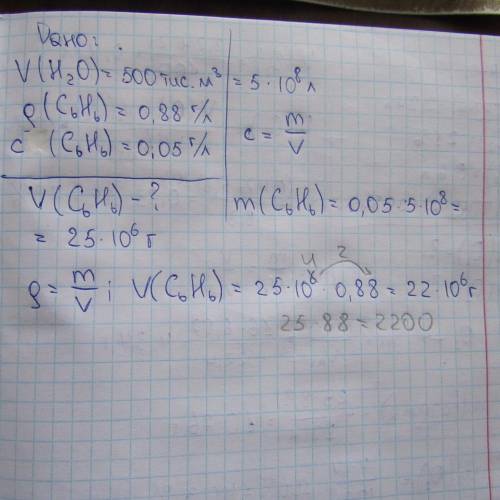 Дано:
V(H₂O) = 500 тис. м³ = 5·10⁸ л
ρ(C₆H₆) = 0,88 г/л
c = m/V
c (C₆H₆) = 0,05 г/л
V(C₆H₆) - ?
m(C₆H₆) = 0,05·5·10⁸ =
= 25·10⁶ г
4 2
ρ = m/V; V(C₆H₆) = 25·10⁶ · 0,88 = 22·10⁶ г
25 88 = 2200